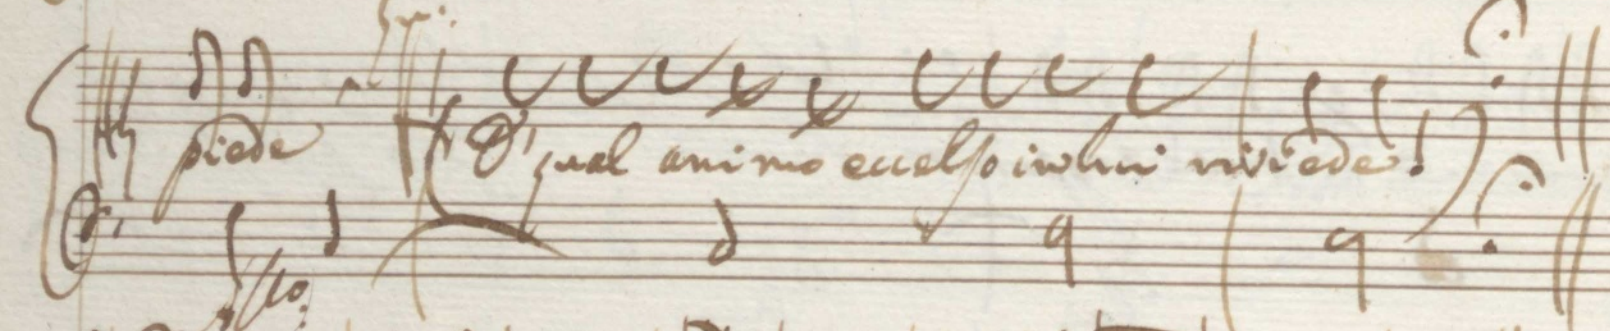 piede O' qual animo eccelso in lui rivìede!